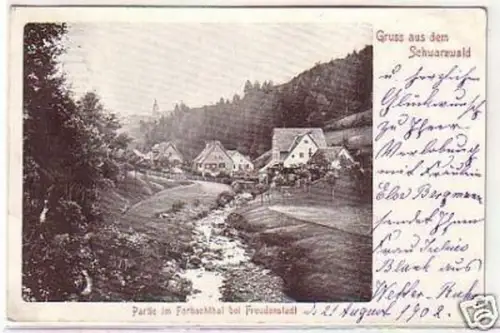 Gruss aus dem
Schwarzwald
u herzlichen
Glückwunsch
zu Ihrer
Verlobung
mit Fräulein
Else Bergmann
sendet Ihnen
Frau Julius
Blank aus
Wetter-Ruhr
Partie im Forbachthal bei Freudenstadt
d. 21 August 1902.